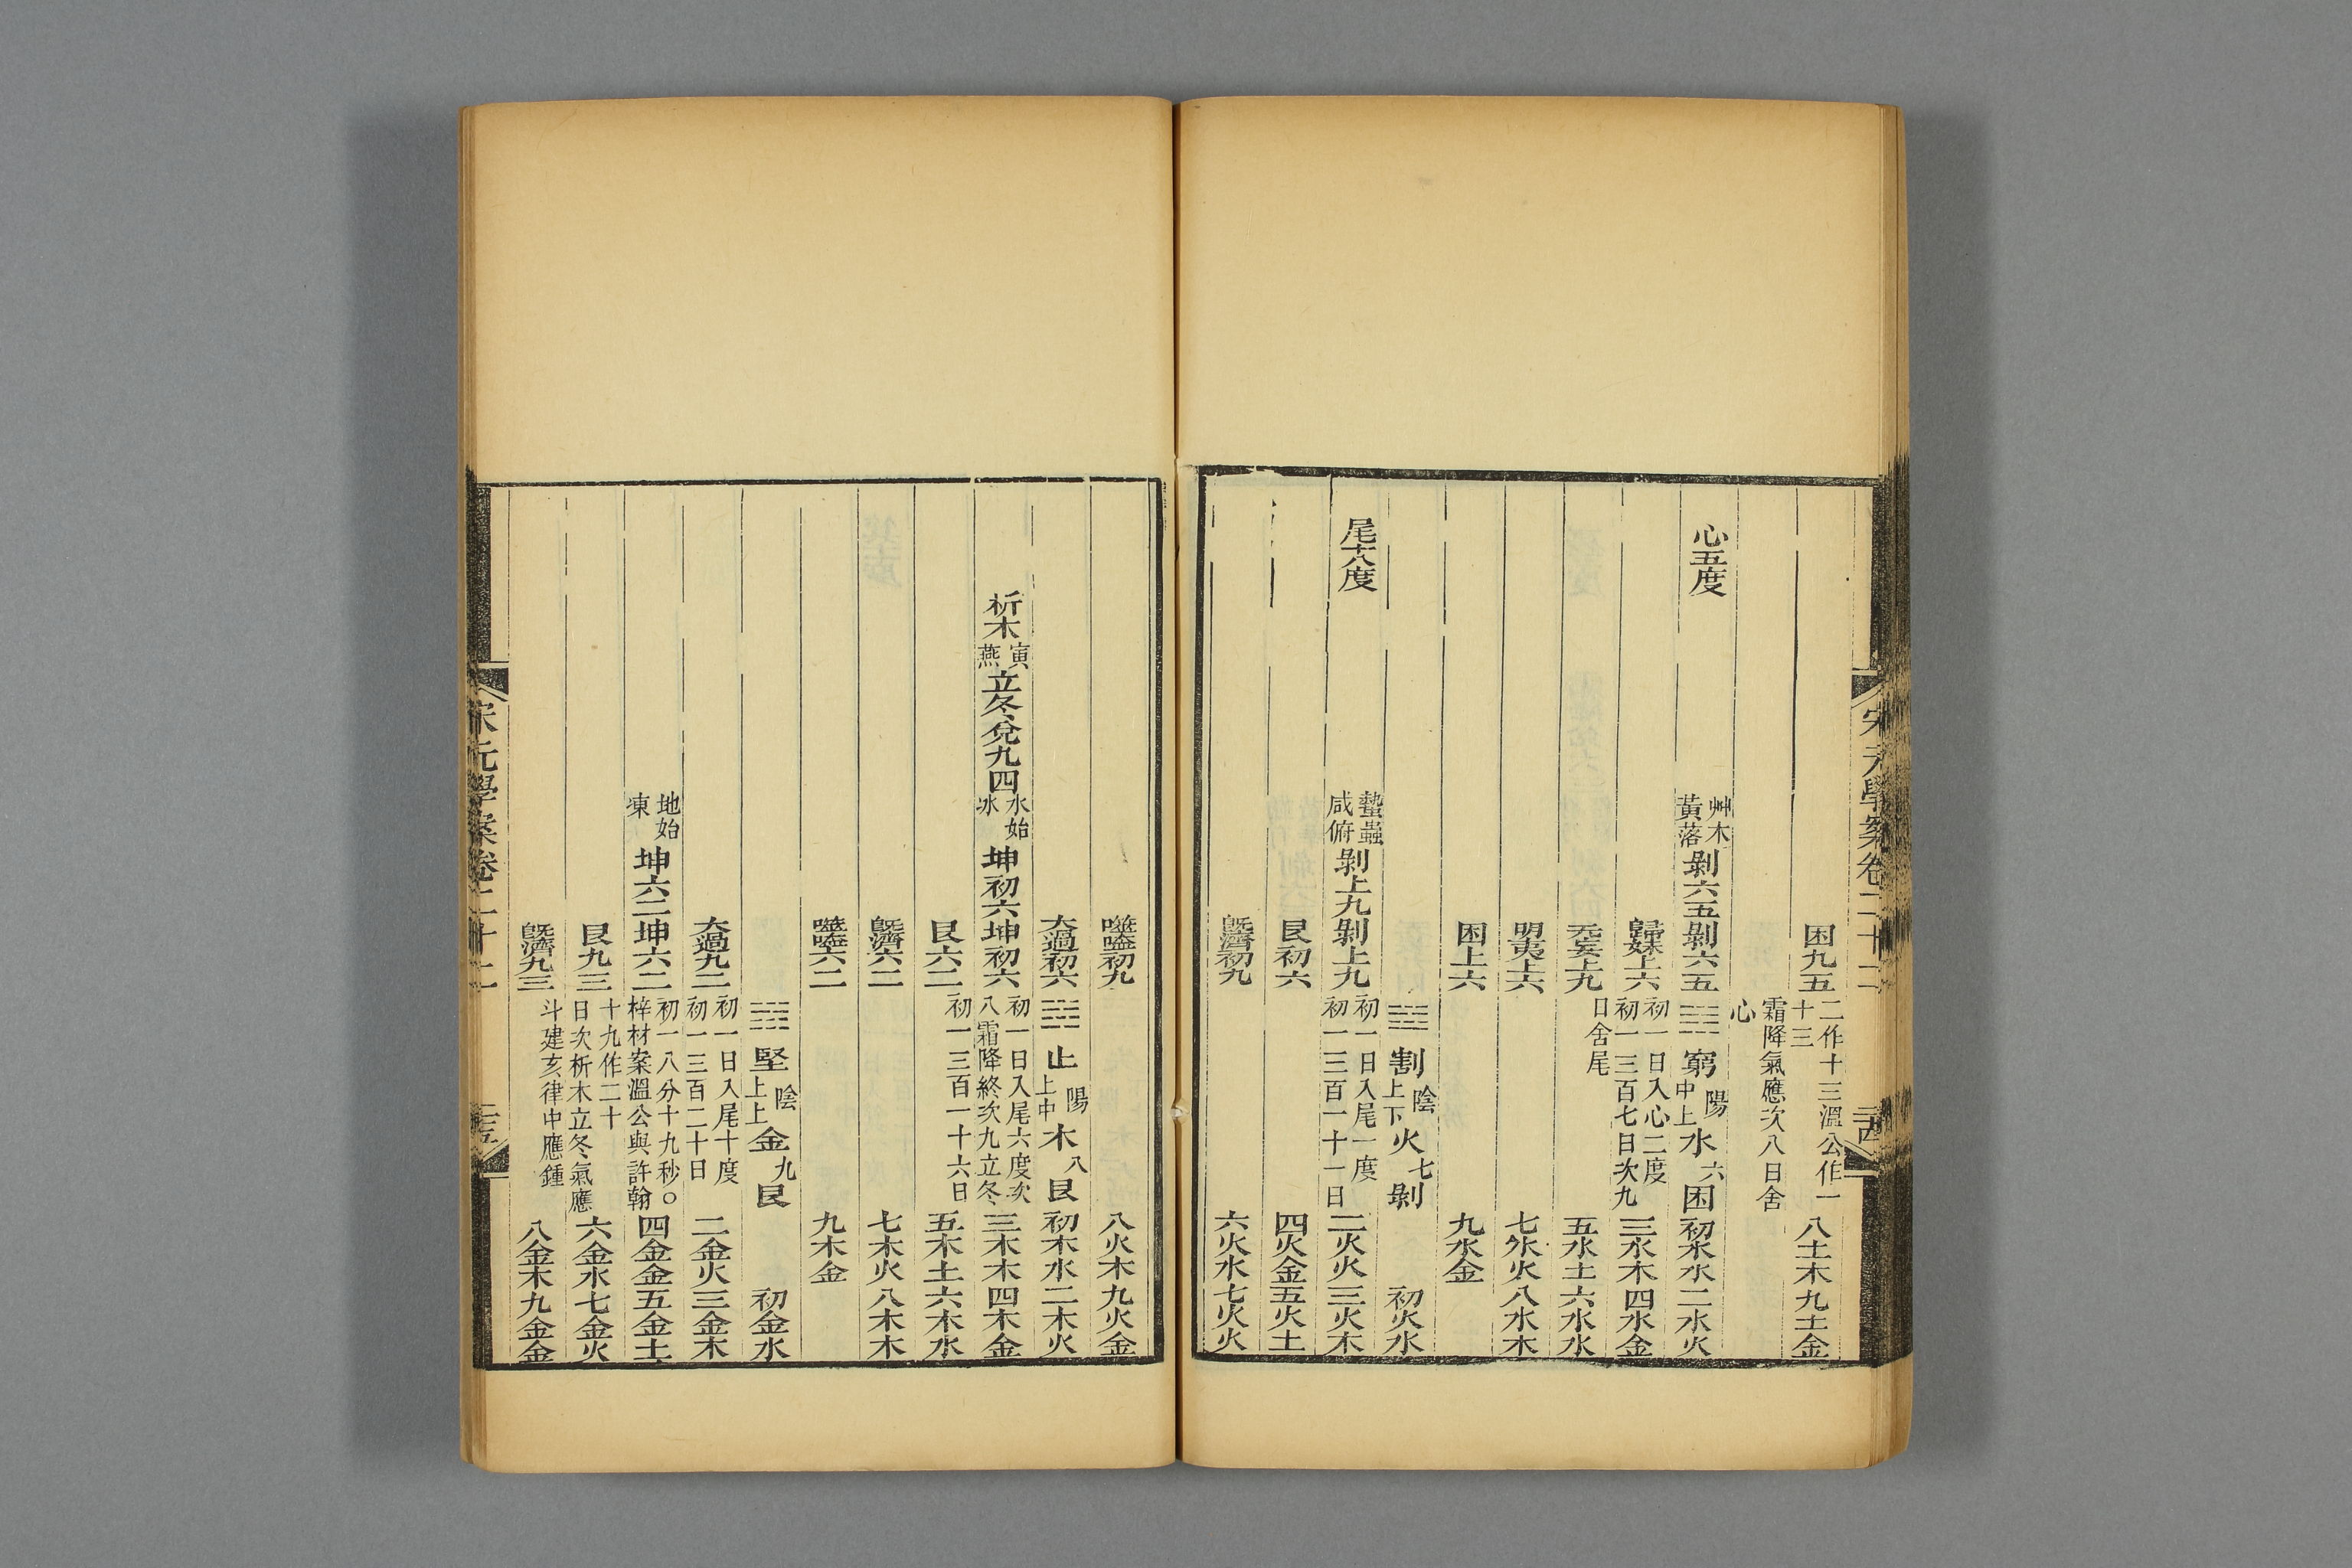 宋元學案卷二十二
困九五 二作十三溫公作一十三 八土木九土金
霜降氣應次八日舍心
心五度 艸木黃落 剝六五剝六五 窮 陽中上 水 六 困 初水水二水火
歸妹上六 初一日入心二度初一三百七日次九 三水木四水金
无妄上九 日舍尾 五水土六水水
明夷上六 七水火八水木
困上六 九水金
割 陰上下 火 七 剝 初火水
尾十八度 蟄蟲咸俯 剝上九剝上九 初一日入尾一度初一三百一十一日 二火火三火木
艮初六 四火金五火土
旣濟初九 六火水七火火
噬嗑初九 八火木九火金
大過初六 止 陽上中 木 八 艮 初木水二木火
析木 寅燕 立冬兌九四 水始冰 坤初六坤初六 初一日入尾六度次八霜降終次九立冬 三木木四木金
艮六二 初一三百一十六日 五木土六木水
旣濟六二 七木火八木木
噬嗑六二 九木金
堅 陰上上 金 九 艮 初金水
大過九二 初一日入尾十度初一三百二十日 二金火三金木
地始凍 坤六二坤六二 初一八分十九秒○梓材案溫公與許翰 四金金五金土
艮九三 十九作二十日次析木立冬氣應 六金水七金火
旣濟九三 斗建亥律中應鍾 八金木九金金
宋元學案卷二十二